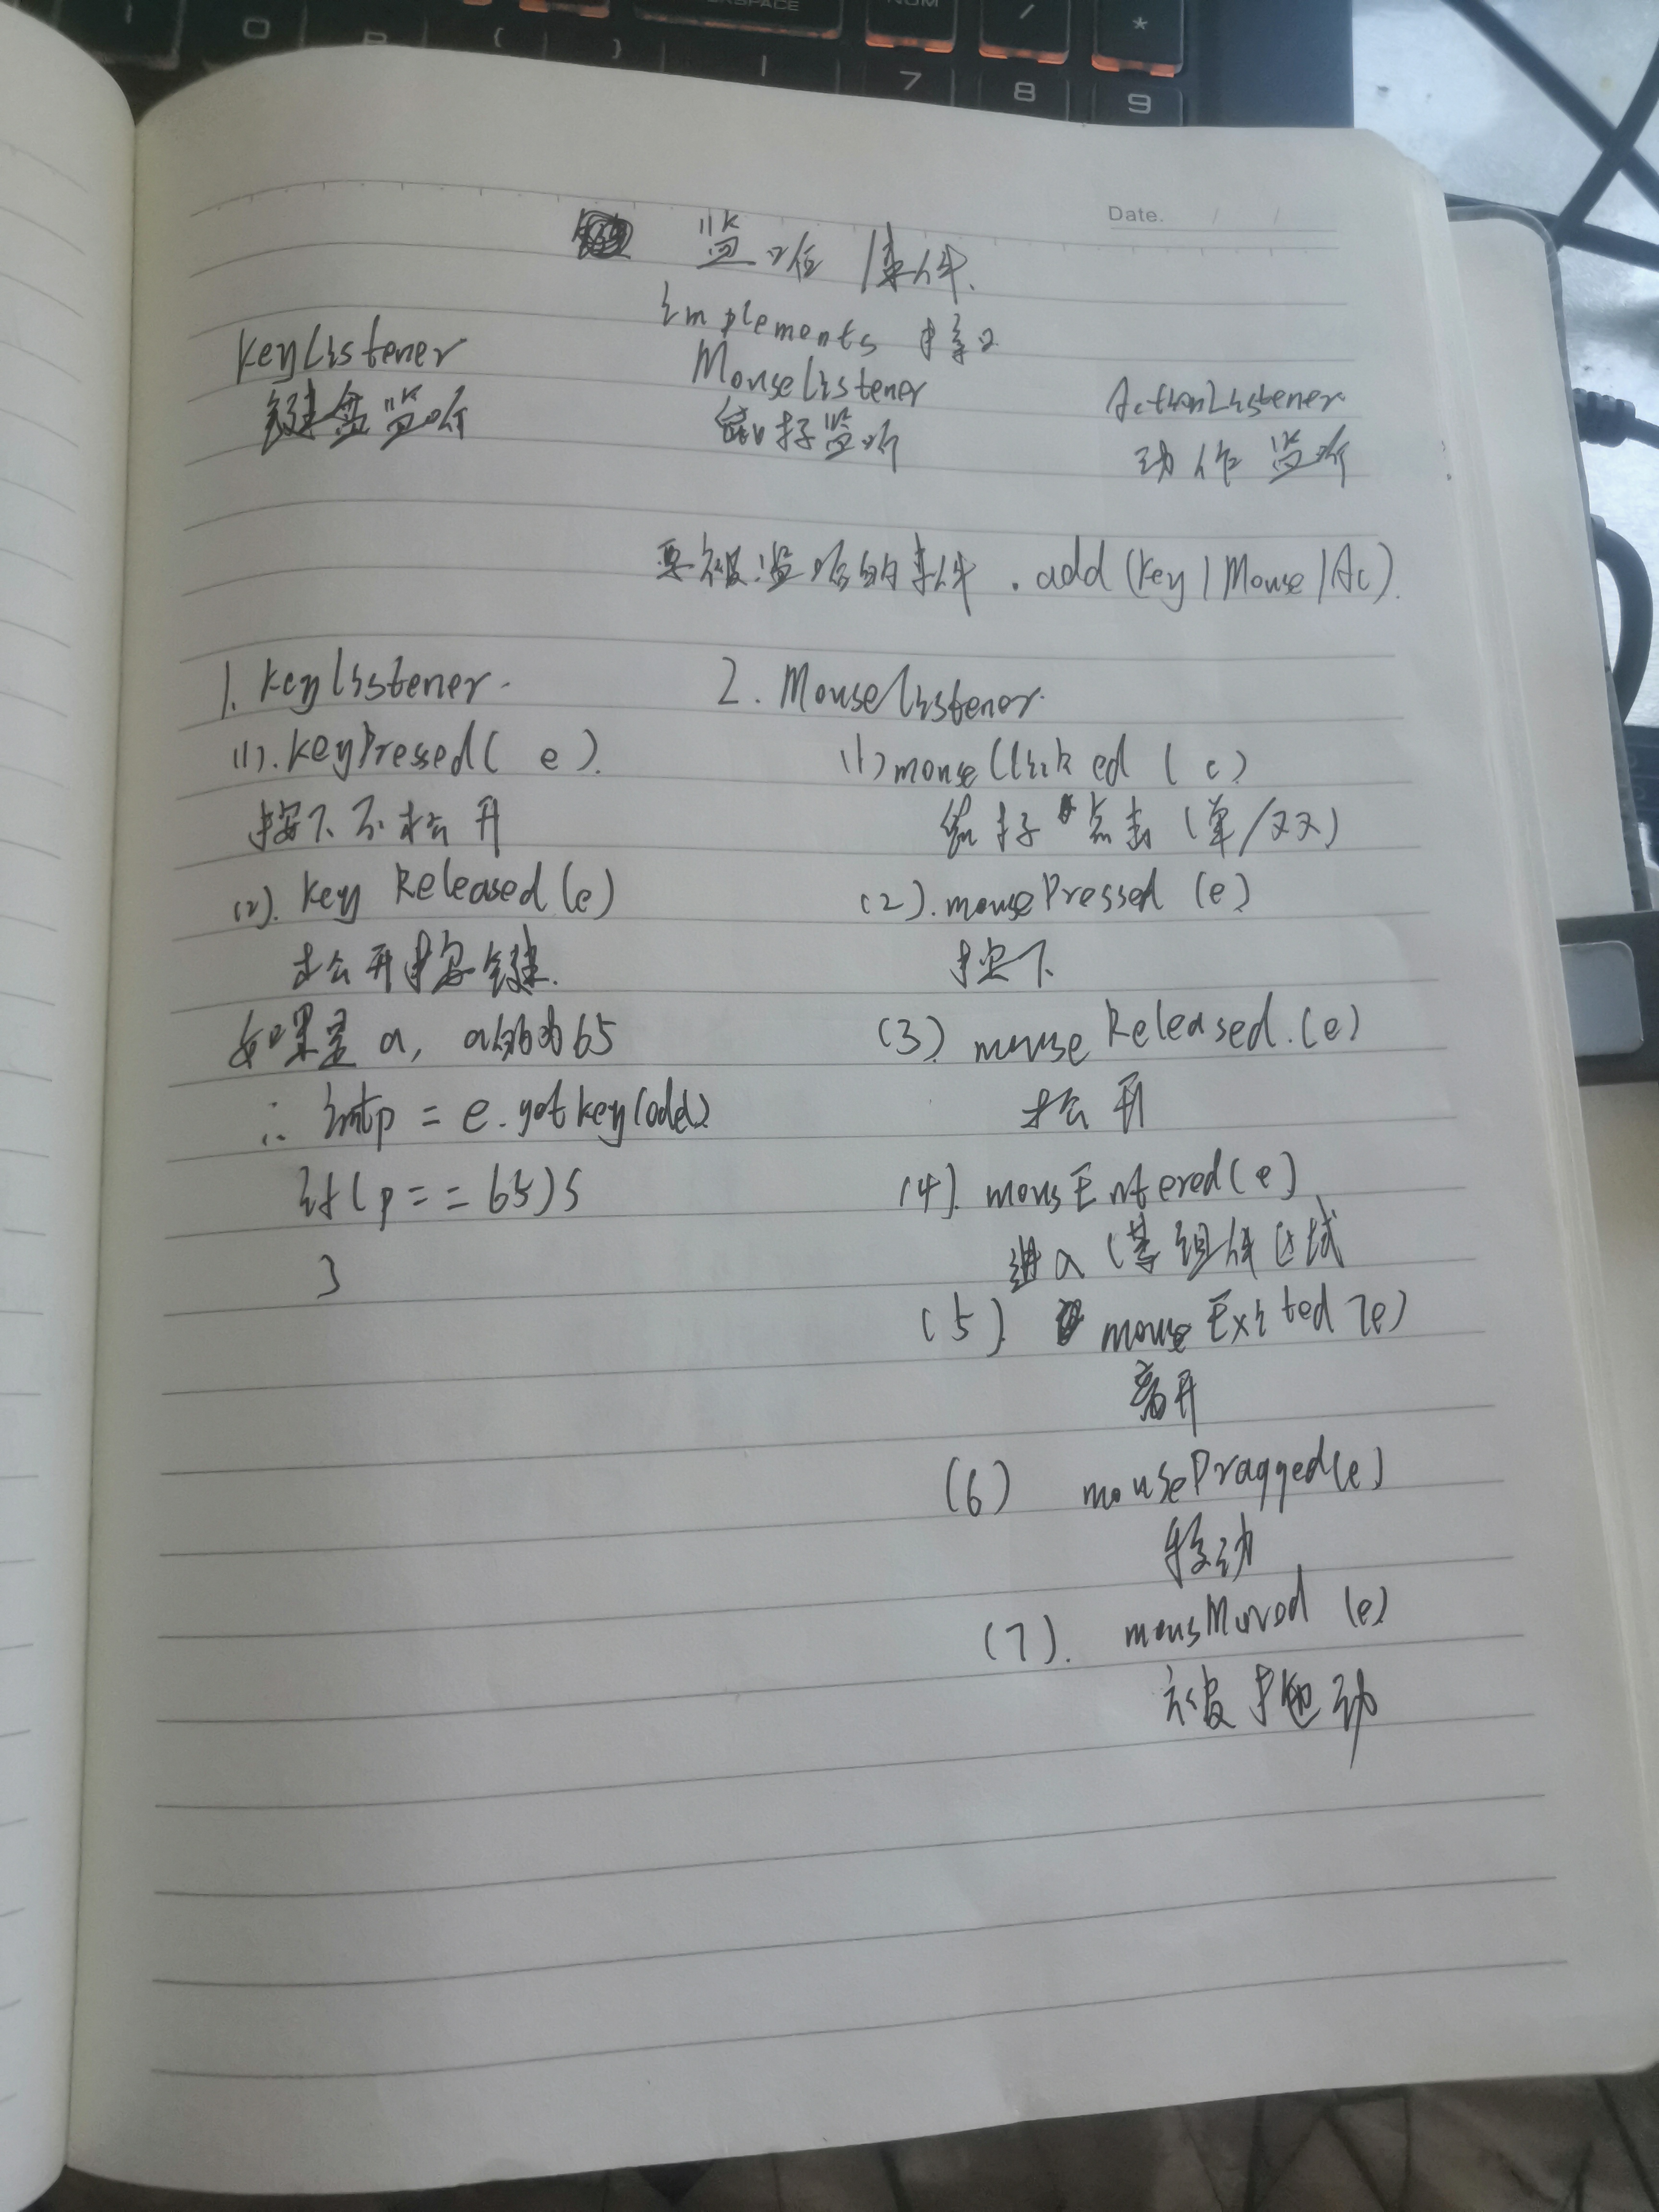 7 8 9
Date. / /
监听事件.
implements 接口
KeyListener
键盘监听
MouseListener
鼠标监听
ActionListener
动作监听
要被监听的事件.add(Key|Mouse|Ac).
1. KeyListener.
(1). KeyPressed( e ).
按下不松开
(2). Key Released(e)
松开按键.
如果是a, a的为65
∴ int p = e.getKey(ode)
if(p==65){
}
2. MouseListener.
(1) mouseClicked (e)
鼠标点击(单/双)
(2). mousePressed (e)
按下
(3) mouse Released.(e)
松开
(4). mousEntered(e)
进入(某组件区域
(5). mouseExited (e)
离开
(6) mouseDragged(e)
移动
(7). mousMoved (e)
被拖动